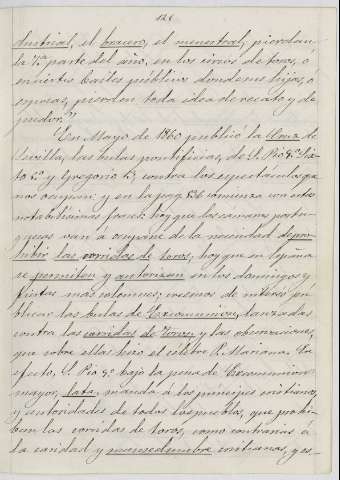 126
dustrial, el bracero, el menestral, pierdan
la 7ª parte del año, en los circos de toros, ó
en ciertos bailes públicos donde sus hijas, ó
esposas, pierden toda idea de recato y de
pudor."
En Mayo de 1860 publicó la Cruz de
Sevilla, las bulas pontificias, de S. Pio 5º Six-
to 5º y Gregorio contra los espectáculos que
nos ocupan; y en la pag 536 comienza con estas
notabilisimas frases: hoy que las camaras portu-
guesas van á ocuparse de la necesidad de pro-
hibir las corridas de toros, hoy que en España
se permiten y autorizan en los domingos y
fiestas mas solemnes; creemos de interes pu-
blicar las bulas de Excomunion, lanzadas
contra las corridas de Toros, y las observaciones,
que sobre ellas hizo el célebre P. Mariana. En
efecto, S. Pio 5º bajo la pena de Excomunion
mayor, lata, manda á los principes cristianos,
y autoridades de todos los pueblos, que prohi-
ban las corridas de toros, como contrarias á
la caridad y mansedumbre cristianas, y es-